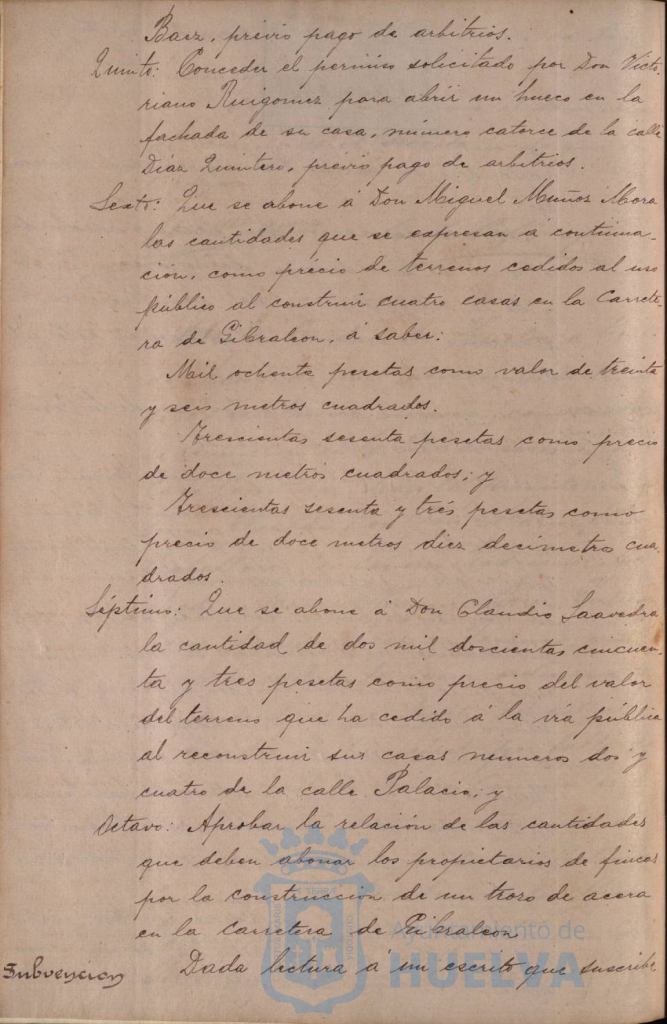 Baez, prévio pago de arbitrios.
Quinto: Conceder el permiso solicitado por Don Victo-
riano Ruigomez para abrir un hueco en la
fachada de su casa, número catorce de la calle
Diaz Quintero, prévio pago de arbitrios.
Sexto: Que se abone á Don Miguel Muñoz Mora
las cantidades que se expresan á continua-
ción, como précio de terrenos cedidos al uso
público al construir cuatro casas en la Carrete-
ra de Gibraleon, á saber:
Mil ochenta pesetas como valor de treinta
y seis metros cuadrados.
Trescientas sesenta pesetas como precio
de doce metros cuadrados; y
Trescientas sesenta y trés pesetas como
precio de doce metros diez decimetros cua-
drados.
Séptimo: Que se abone á Don Claudio Saavedra
la cantidad de dos mil doscientas cincuen-
ta y tres pesetas como precio del valor
del terreno que ha cedido á la via pública
al reconstruir sus casas numeros dos y
cuatro de la calle Palacio; y
Octavo: Aprobar la relación de las cantidades
que deben abonar los propietarios de fincas
por la construccion de un trozo de acera
en la carretera de Gibraleon
Subvencion Dada lectura á un escrito que suscribe
Ayuntamiento de
HUELVA